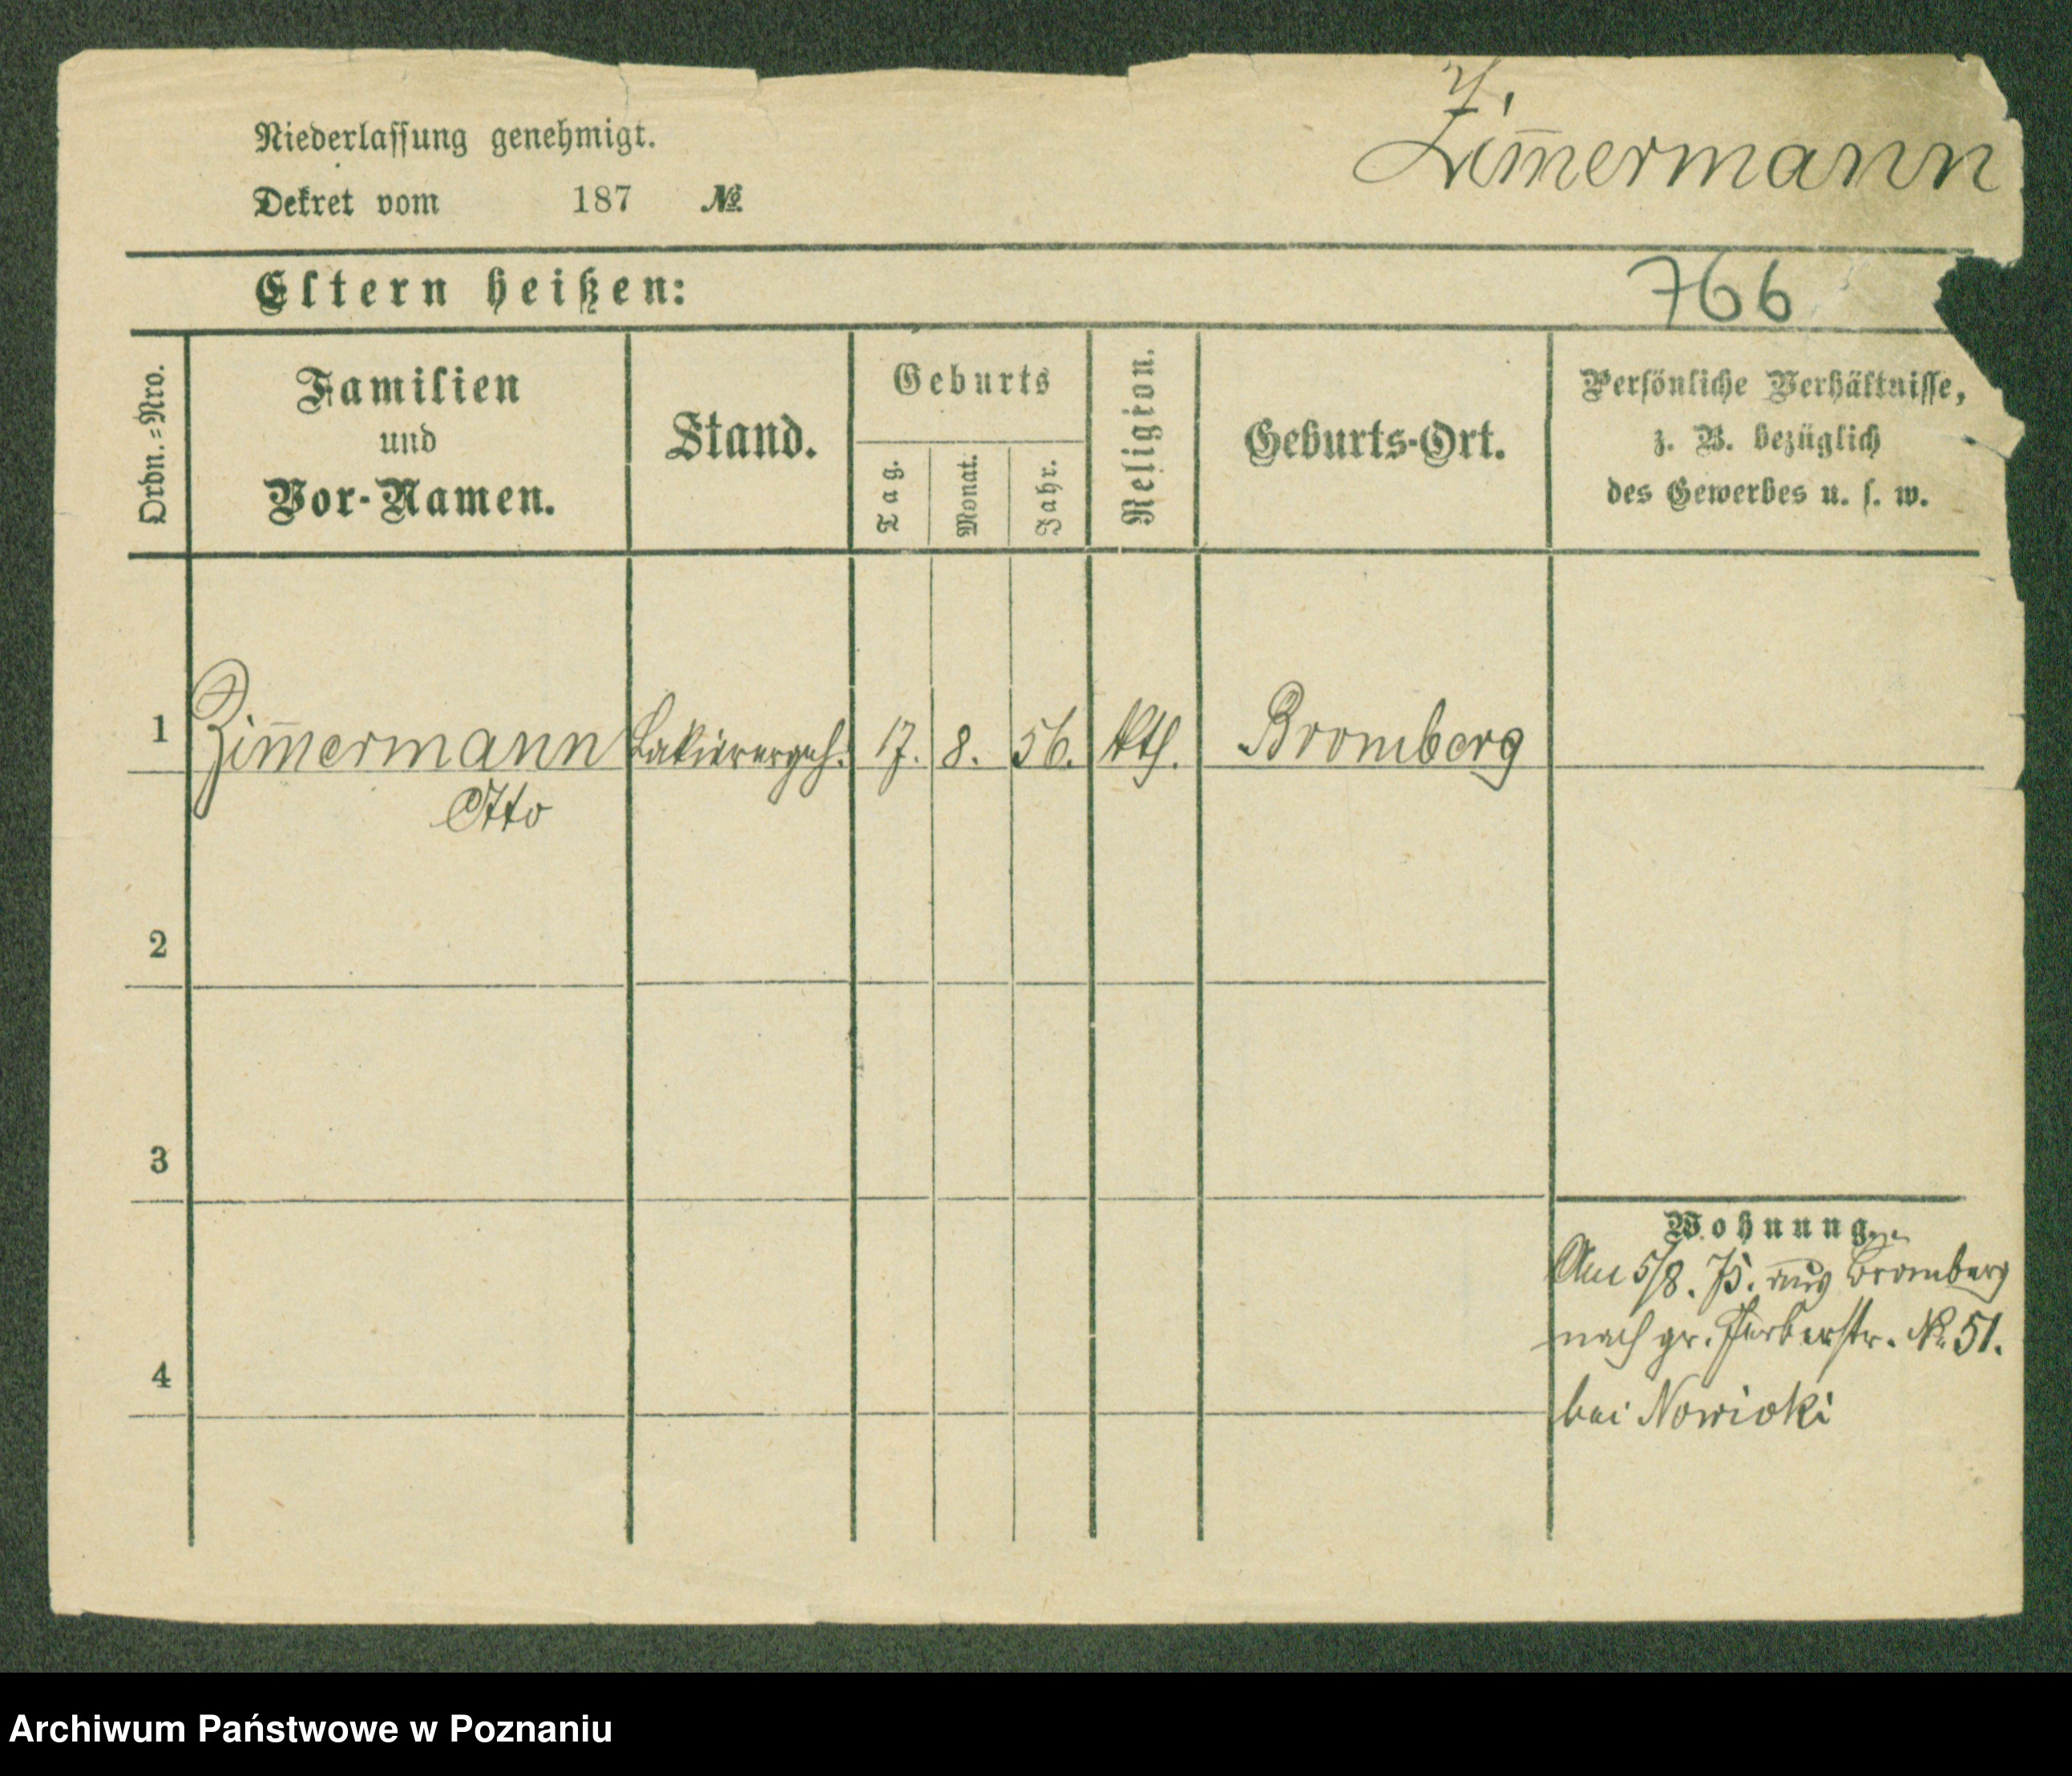 Z.
Zim̅ermann
Niederlassung genehmigt.
Dekret vom 187 №
Eltern heißen:
766
Ordn.=Nro.
Familien
und
Vor-Namen.
Stand.
Geburts
Tag.
Monat.
Jahr.
Religion.
Geburts-Ort.
Persönliche Verhältnisse,
z. B. bezüglich
des Gewerbes u. s. w.
1 Zim̅ermann Lakierergeh. 17. 8. 56. kth. Bromberg
Otto
2
3
4
Wohnung.
Am 5/8. 75. aus Bromberg
nach gr. Gerberstr. № 51.
bei Nowicki
Archiwum Państwowe w Poznaniu